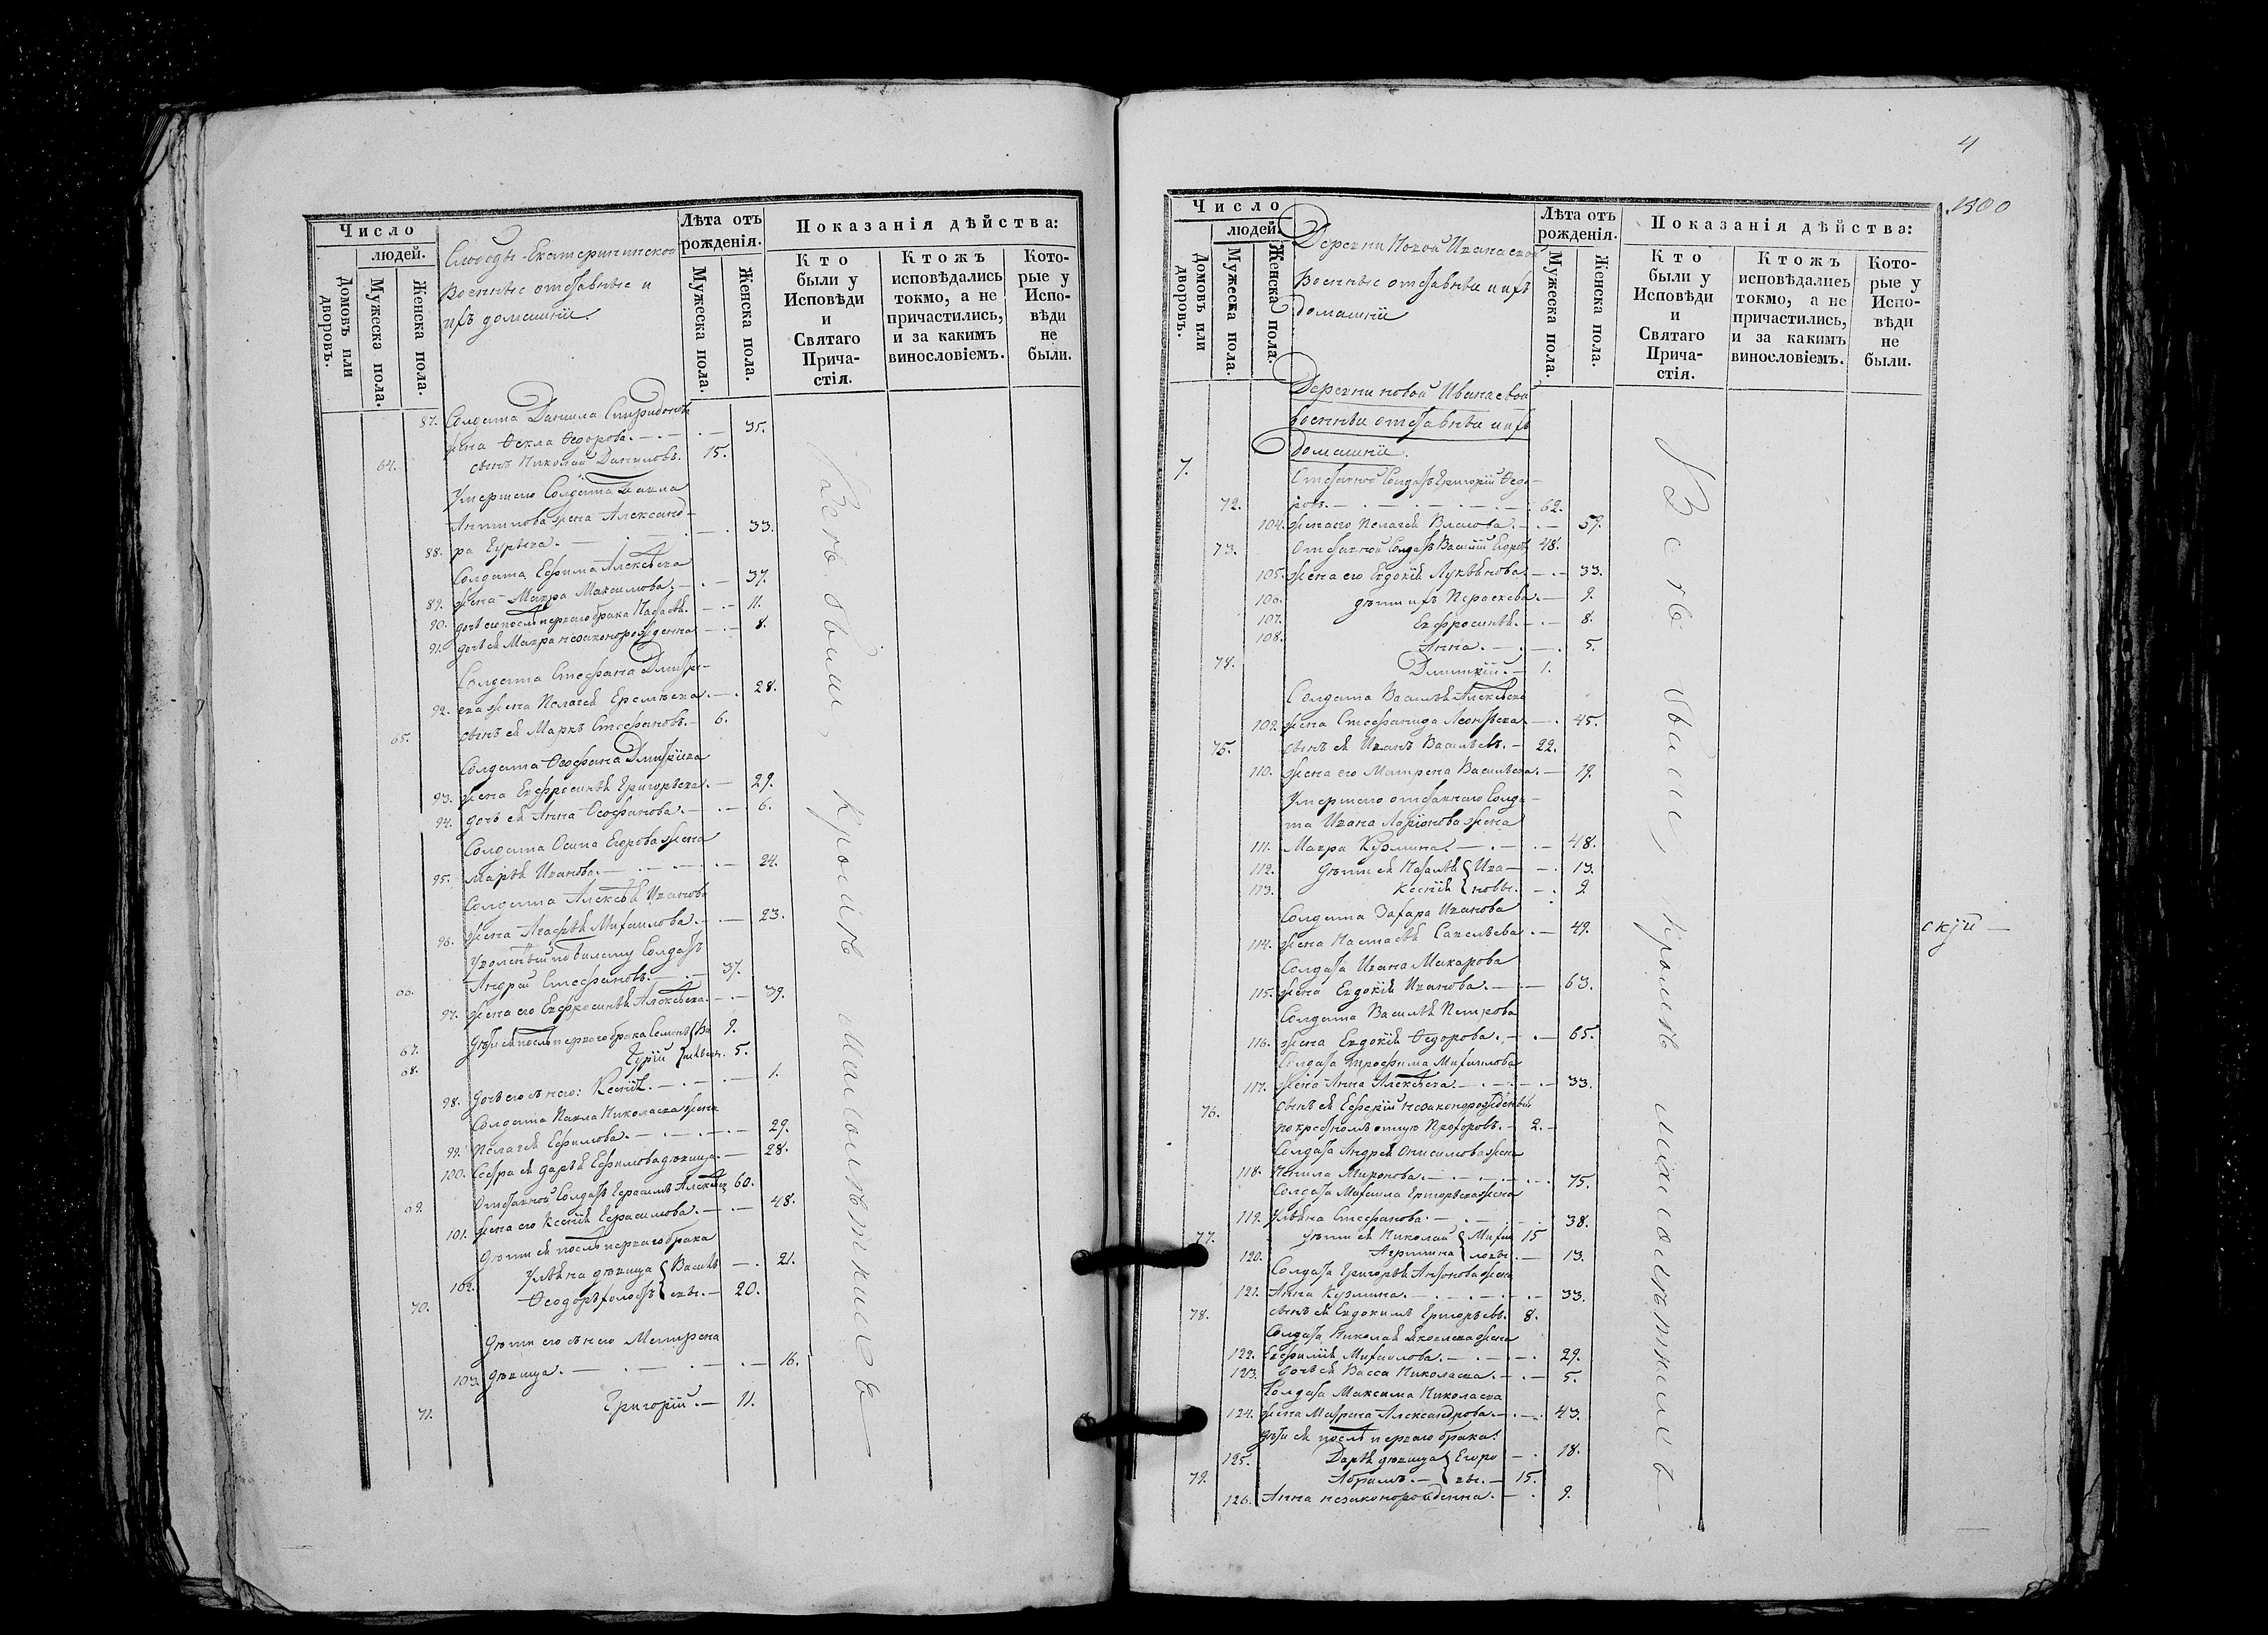 Число
людей.
Домовъ или дворовъ.
Мужеска пола.
Женска пола.
Слободы Екатерининской
военные отставные и
ихъ домашніи.
Лѣта отъ рожденія.
Мужеска пола.
Женска пола.
Показанія дѣйства:
Кто были у Исповѣди и Святаго Прича-стія.
Ктожъ исповѣдались токмо, а не причастились, и за какимъ винословіемъ.
Кото-рые у Испо-вѣди не были.
87. Солдата Данила Спиридонова
жена Фекла Федорова. 35.
64. сынъ Николай Даниловъ. 15.
Умершаго Солдата Павла
Антипова жена Александ-
88. ра Гурьева. 33.
Солдата Ефима Алексѣева
89. жена Мавра Максимова. 37.
90. дочь ея послѣ перваго брака 11.
91. дочь ея Мавра незаконорожденна 8.
Солдата Стефана Дмитрі-
92. ева жена Пелагея Еремѣева. 28.
65. сынъ ея Маркъ Стефановъ. 6.
Солдата Феофана Дмитріева
93. жена Евфросинья Григорьева. 29.
94. дочь ея Анна Феофанова. 6.
Солдата Осипа Егорова жена
95. Марья Иванова. 24.
Солдата Алексѣя Иванова
96. жена Агафья Михаилова. 23.
Уволенный по билету Солдатъ
66. Андрей Стефановъ. 37.
97. жена его Евфросинья Алексѣева. 39.
67. дѣти ея послѣ перваго брака Семенъ 9.
68. Гурій 5.
98. дочь его съ нею: Ксенія. 1.
Солдата Павла Николаева жена
99. Пелагея Ефимова. 29.
100. Сестра ея Дарья Ефимова дѣвица. 28.
69. Отставной Солдатъ Герасимъ Алексѣевъ 60.
101. жена его Ксенія Герасимова. 48.
Дѣти ея послѣ перваго брака
102. Ульяна дѣвица Василь 21.
70. Феодоръ холостъ евы. 20.
Дѣти его съ нею Матрена
103. дѣвица. 16.
71. Григорій. 11.
Всѣ были, кромѣ малолѣтнихъ
4
1300
Число
людей.
Домовъ или дворовъ.
Мужеска пола.
Женска пола.
Деревни Новой Иванаевой
военные отставные и ихъ
домашніи
Лѣта отъ рожденія.
Мужеска пола.
Женска пола.
Показанія дѣйства:
Кто были у Исповѣди и Святаго Прича-стія.
Ктожъ исповѣдались токмо, а не причастились, и за какимъ винословіемъ.
Кото-рые у Испо-вѣди не были.
Деревни новой Иванаевой
военныи отставныи и ихъ
домашніи.
7.
Отставной Солдатъ Григорій Федо-
72. ровъ. 62.
104. жена его Пелагея Власова. 59.
73. Отставной Солдатъ Василій Егоровъ 48.
105. жена его Евдокія Лукьянова. 33.
106. дѣти ихъ Параскева. 9.
107. Евфросинья. 8.
108. Анна. 5.
74. Дмитрій. 1.
Солдата Василья Алексѣева
109. жена Стефанида Леонтьева. 45.
75. сынъ ея Иванъ Васильевъ. 22.
110. жена его Матрена Васильева. 19.
Умершаго отставнаго Солда-
та Ивана Ларіонова жена
111. Мавра Кузмина. 48.
112. Дѣти ея Наталья Ива- 13.
113. Ксенія новы. 9.
Солдата Захара Иванова
114. жена Настасья Савельева. 49.
Солдата Ивана Макарова
115. жена Евдокія Иванова. 63.
Солдата Василья Петрова
116. жена Евдокія Федорова. 65.
Солдата Трофима Михаилова
117. жена Анна Алексѣева. 33.
76. сынъ ея Еферій незаконорожденный
по крестному отцу Прохоровъ. 2.
Солдата Андрея Онисимова жена
118. Ненила Миронова. 75.
Солдата Михаила Григорьева жена
119. Ульяна Стефанова. 38.
77. Дѣти ея Николай Михаи 15
120. Агрипина ловы. 13.
Солдата Григорья Антонова жена
121. Анна Кузмина. 33.
78. сынъ ея Евдокимъ Григорьевъ. 8.
Солдата Николая Яковлева жена
122. Евфимія Михаилова. 29.
123. дочь ея Васса Николаева. 5.
Солдата Максима Николаева
124. жена Матрена Александрова. 43.
дѣти ея послѣ перваго брака:
125. Дарья дѣвица Егоро 18.
79. Абрамъ. вы. 15.
126. Анна незаконорожденна. 9.
Всѣ были, кромѣ малолѣтнихъ
скій